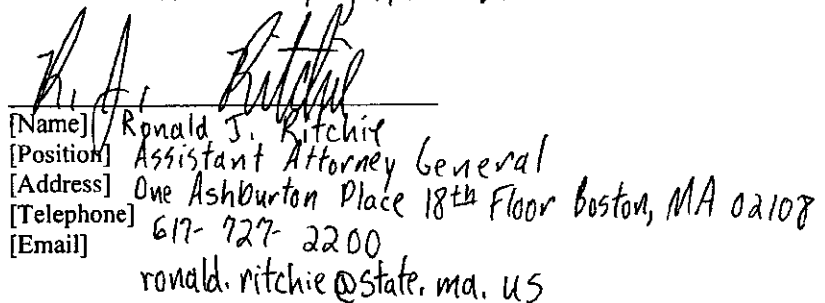 R. J. Ritchie
[Name] Ronald J. Ritchie
[Position] Assistant Attorney General
[Address] One Ashburton Place 18th Floor Boston, MA 02108
[Telephone] 617-727-2200
[Email]
ronald.ritchie@state.ma.us